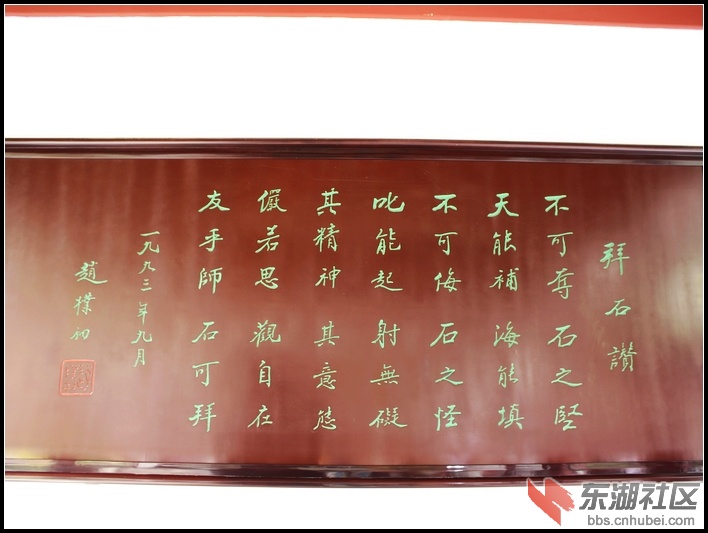 拜石讚
不可奪 石之堅
天能補 海能填
不可侮 石之怪
叱能起 射無礙
其精神 其意態
儼若思 觀自在
友乎師 石可拜
一九九三年九月
趙樸初
东湖社区
bbs.cnhubei.com